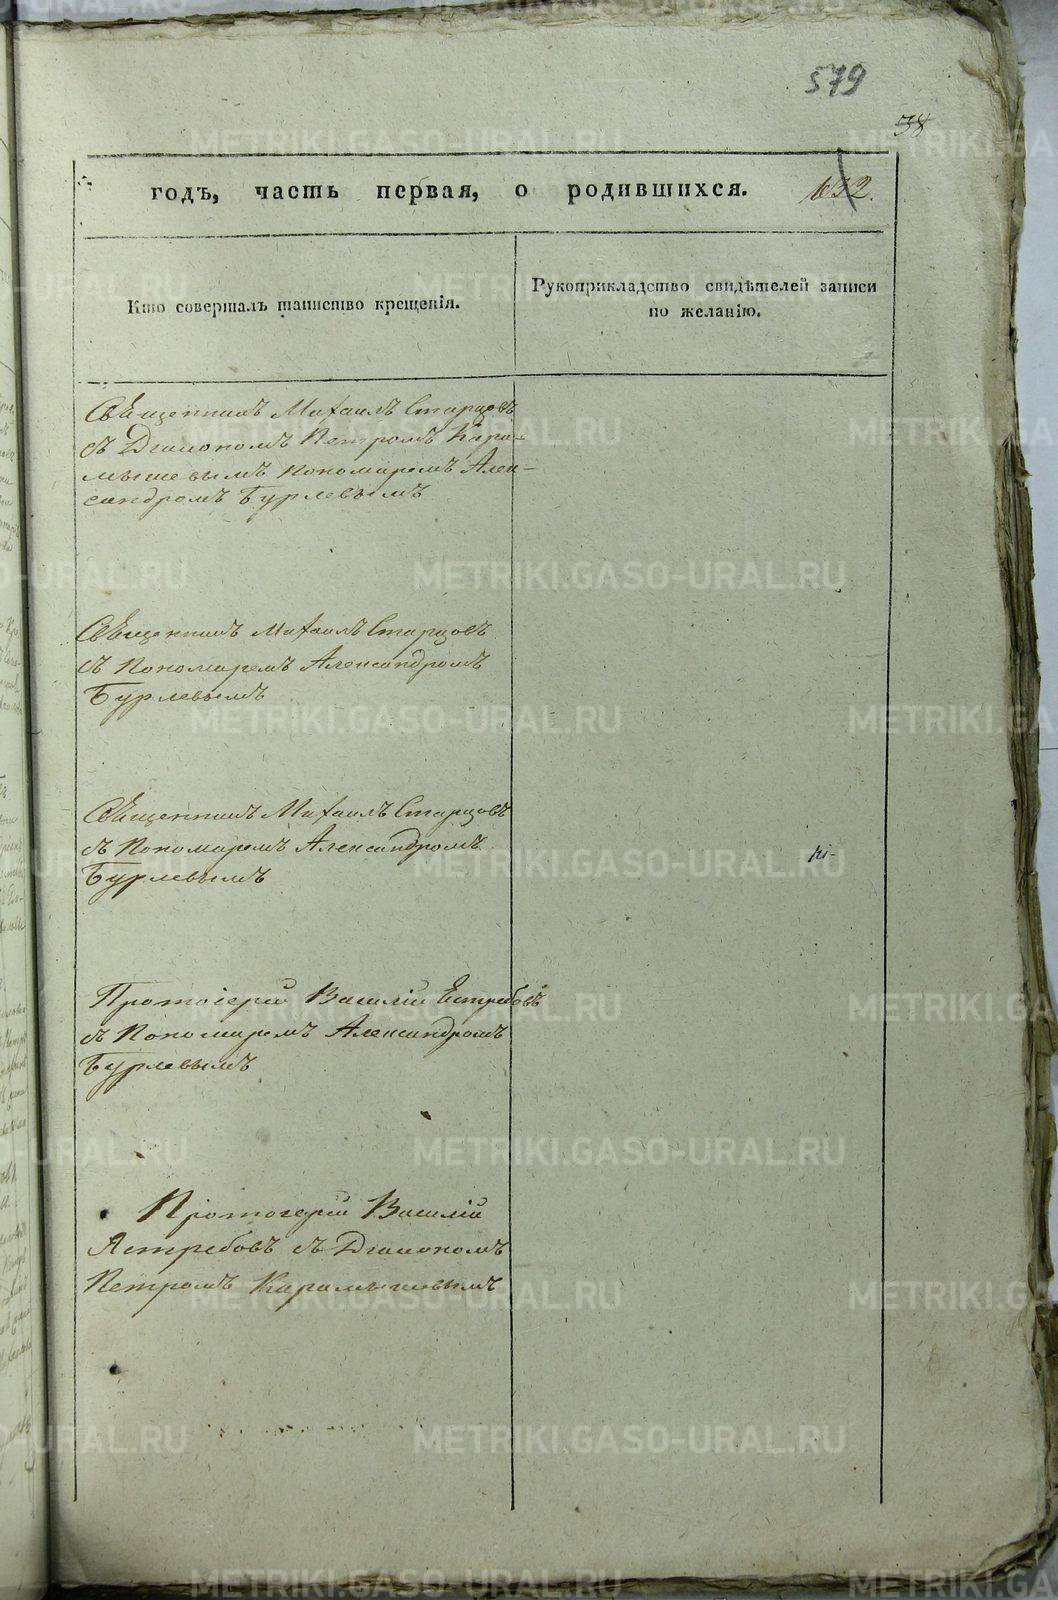 579
38
годъ, часть первая, о родившихся. 1632.
Кто совершалъ таинство крещенія.
Рукоприкладство свидѣтелей записи
по желанію.
Священникъ Михаилъ Старцовъ
съ Діакономъ Петромъ Кара-
мышевымъ Пономаремъ Алек-
сандромъ Бурлевымъ
Священникъ Михаилъ Старцовъ
съ Пономаремъ Александромъ
Бурлевымъ
Священникъ Михаилъ Старцовъ
съ Пономаремъ Александромъ
Бурлевымъ
Протоіерей Василій Естребовъ
съ Пономаремъ Александромъ
Бурлевымъ
Протоіерей Василій
Ястребовъ съ Діакономъ
Петромъ Карамышевымъ
METRIKI.GASO-URAL.RU